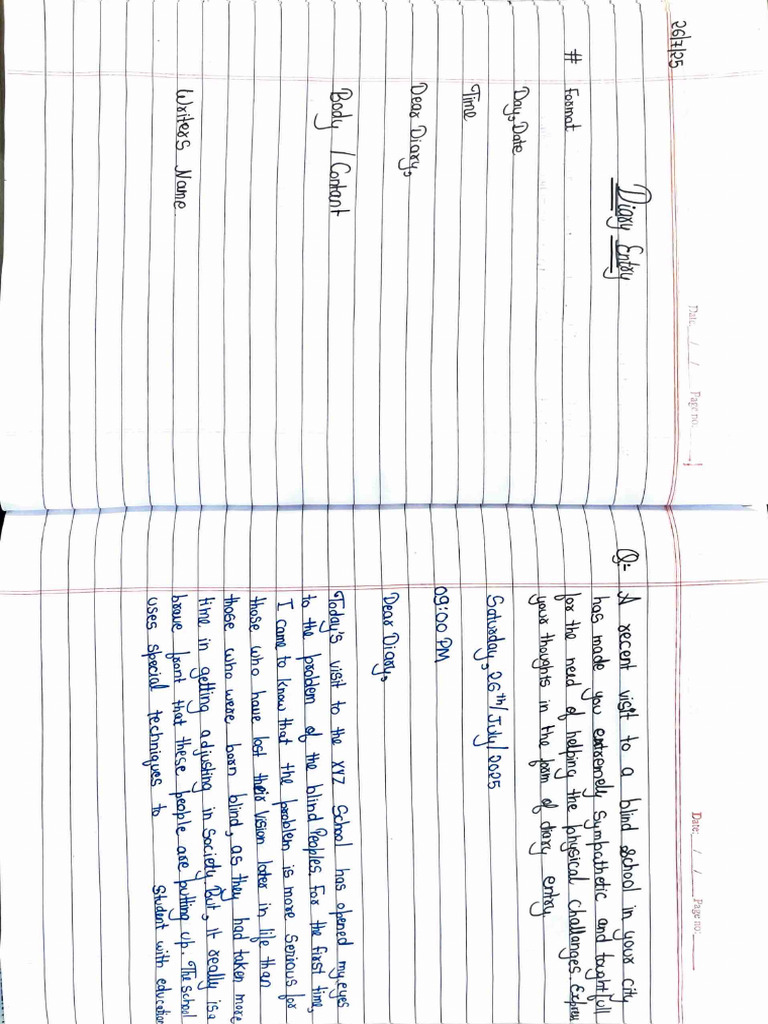 26/7/25
Date: / / Page no:
Diary Entry
# Format
Day, Date
Time
Dear Diary,
Body / Contant
Writers Name
Date: / / Page no:
Q:- A recent visit to a blind school in your city
has made you extremely Sympathetic and toughtfull
for the need of helping the physical challanges. Expres
your thoughts in the form of diary entry
Saturday, 26th/July/2025
09:00 PM
Dear Diary,
Today's visit to the XYZ School has opened my eyes
to the problem of the blind Peoples. For the first time,
I came to know that the problem is more Serious for
those who have lost their vision later in life than
those who were born blind, as they had taken more
time in getting adjusting in Society. But, it really is a
brave front that these people are putting up. The School
uses special techniques to Student with education